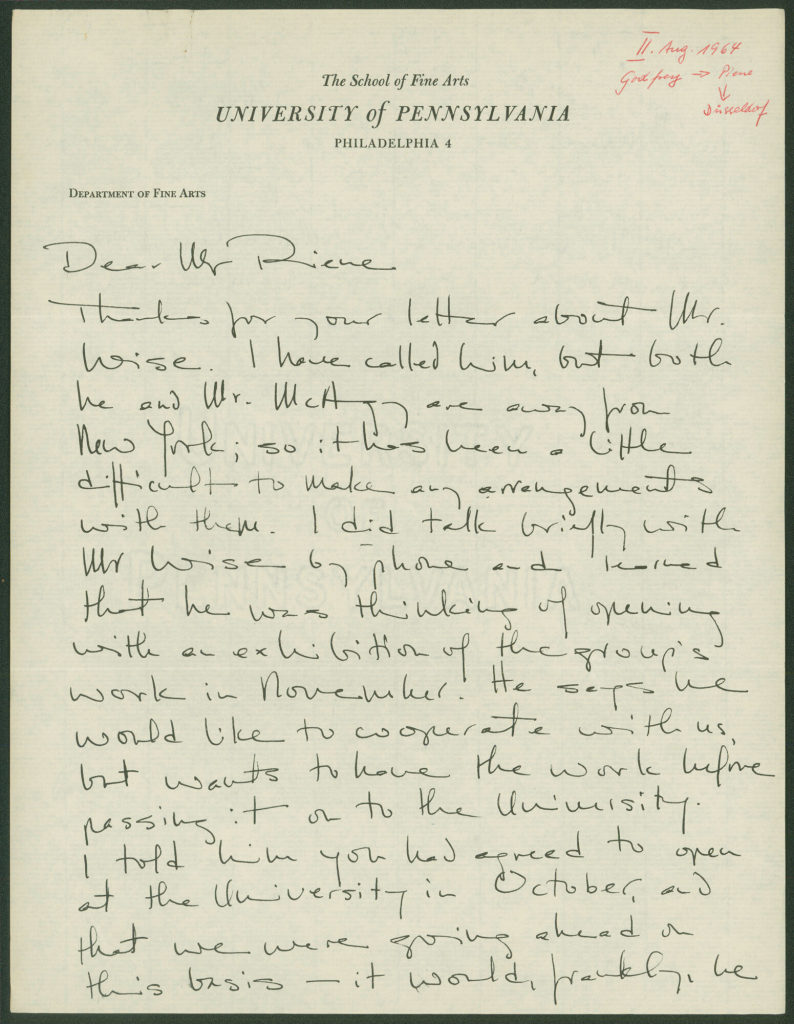 II. Aug. 1964
Godfrey → Piene
↓
Düsseldorf
The School of Fine Arts
UNIVERSITY of PENNSYLVANIA
PHILADELPHIA 4
DEPARTMENT OF FINE ARTS
Dear Mr Piene
Thanks for your letter about Mr.
Wise. I have called him, but both
he and Mr. McAgy are away from
New York; so it has been a little
difficult to make any arrangements
with them. I did talk briefly with
Mr Wise by phone and learned
that he was thinking of opening
with an exhibition of the group's
work in November. He says he
would like to cooperate with us,
but wants to have the work before
passing it on to the University.
I told him you had agreed to open
at the University in October, and
that we were going ahead on
this basis — it would, frankly, be